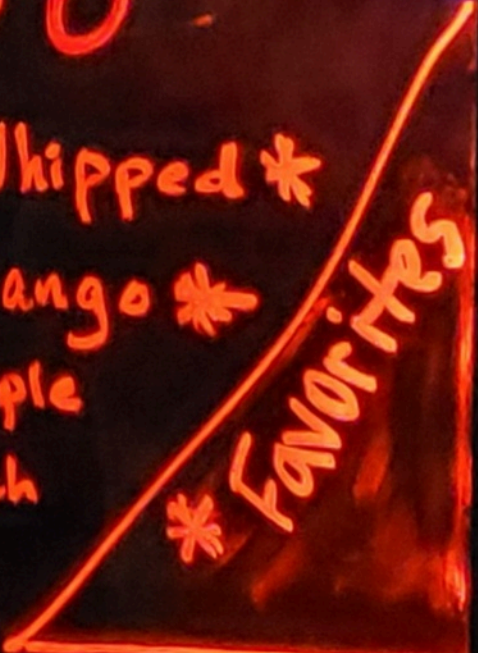 hipped *
ango *
ple
h
* Favorites